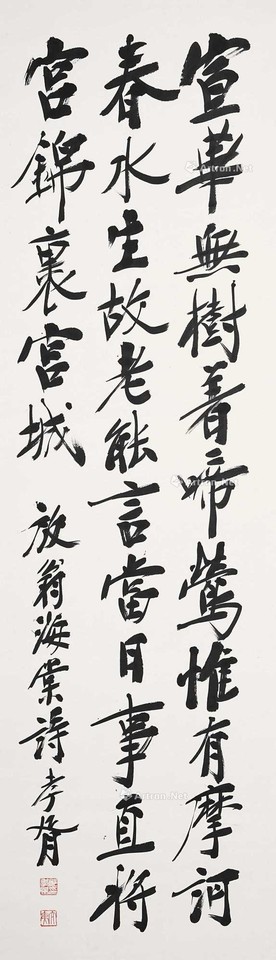 宣華無樹著啼鶯惟有摩訶
春水生故老能言當日事直將
宮錦裏宮城
放翁海棠詩 孝胥